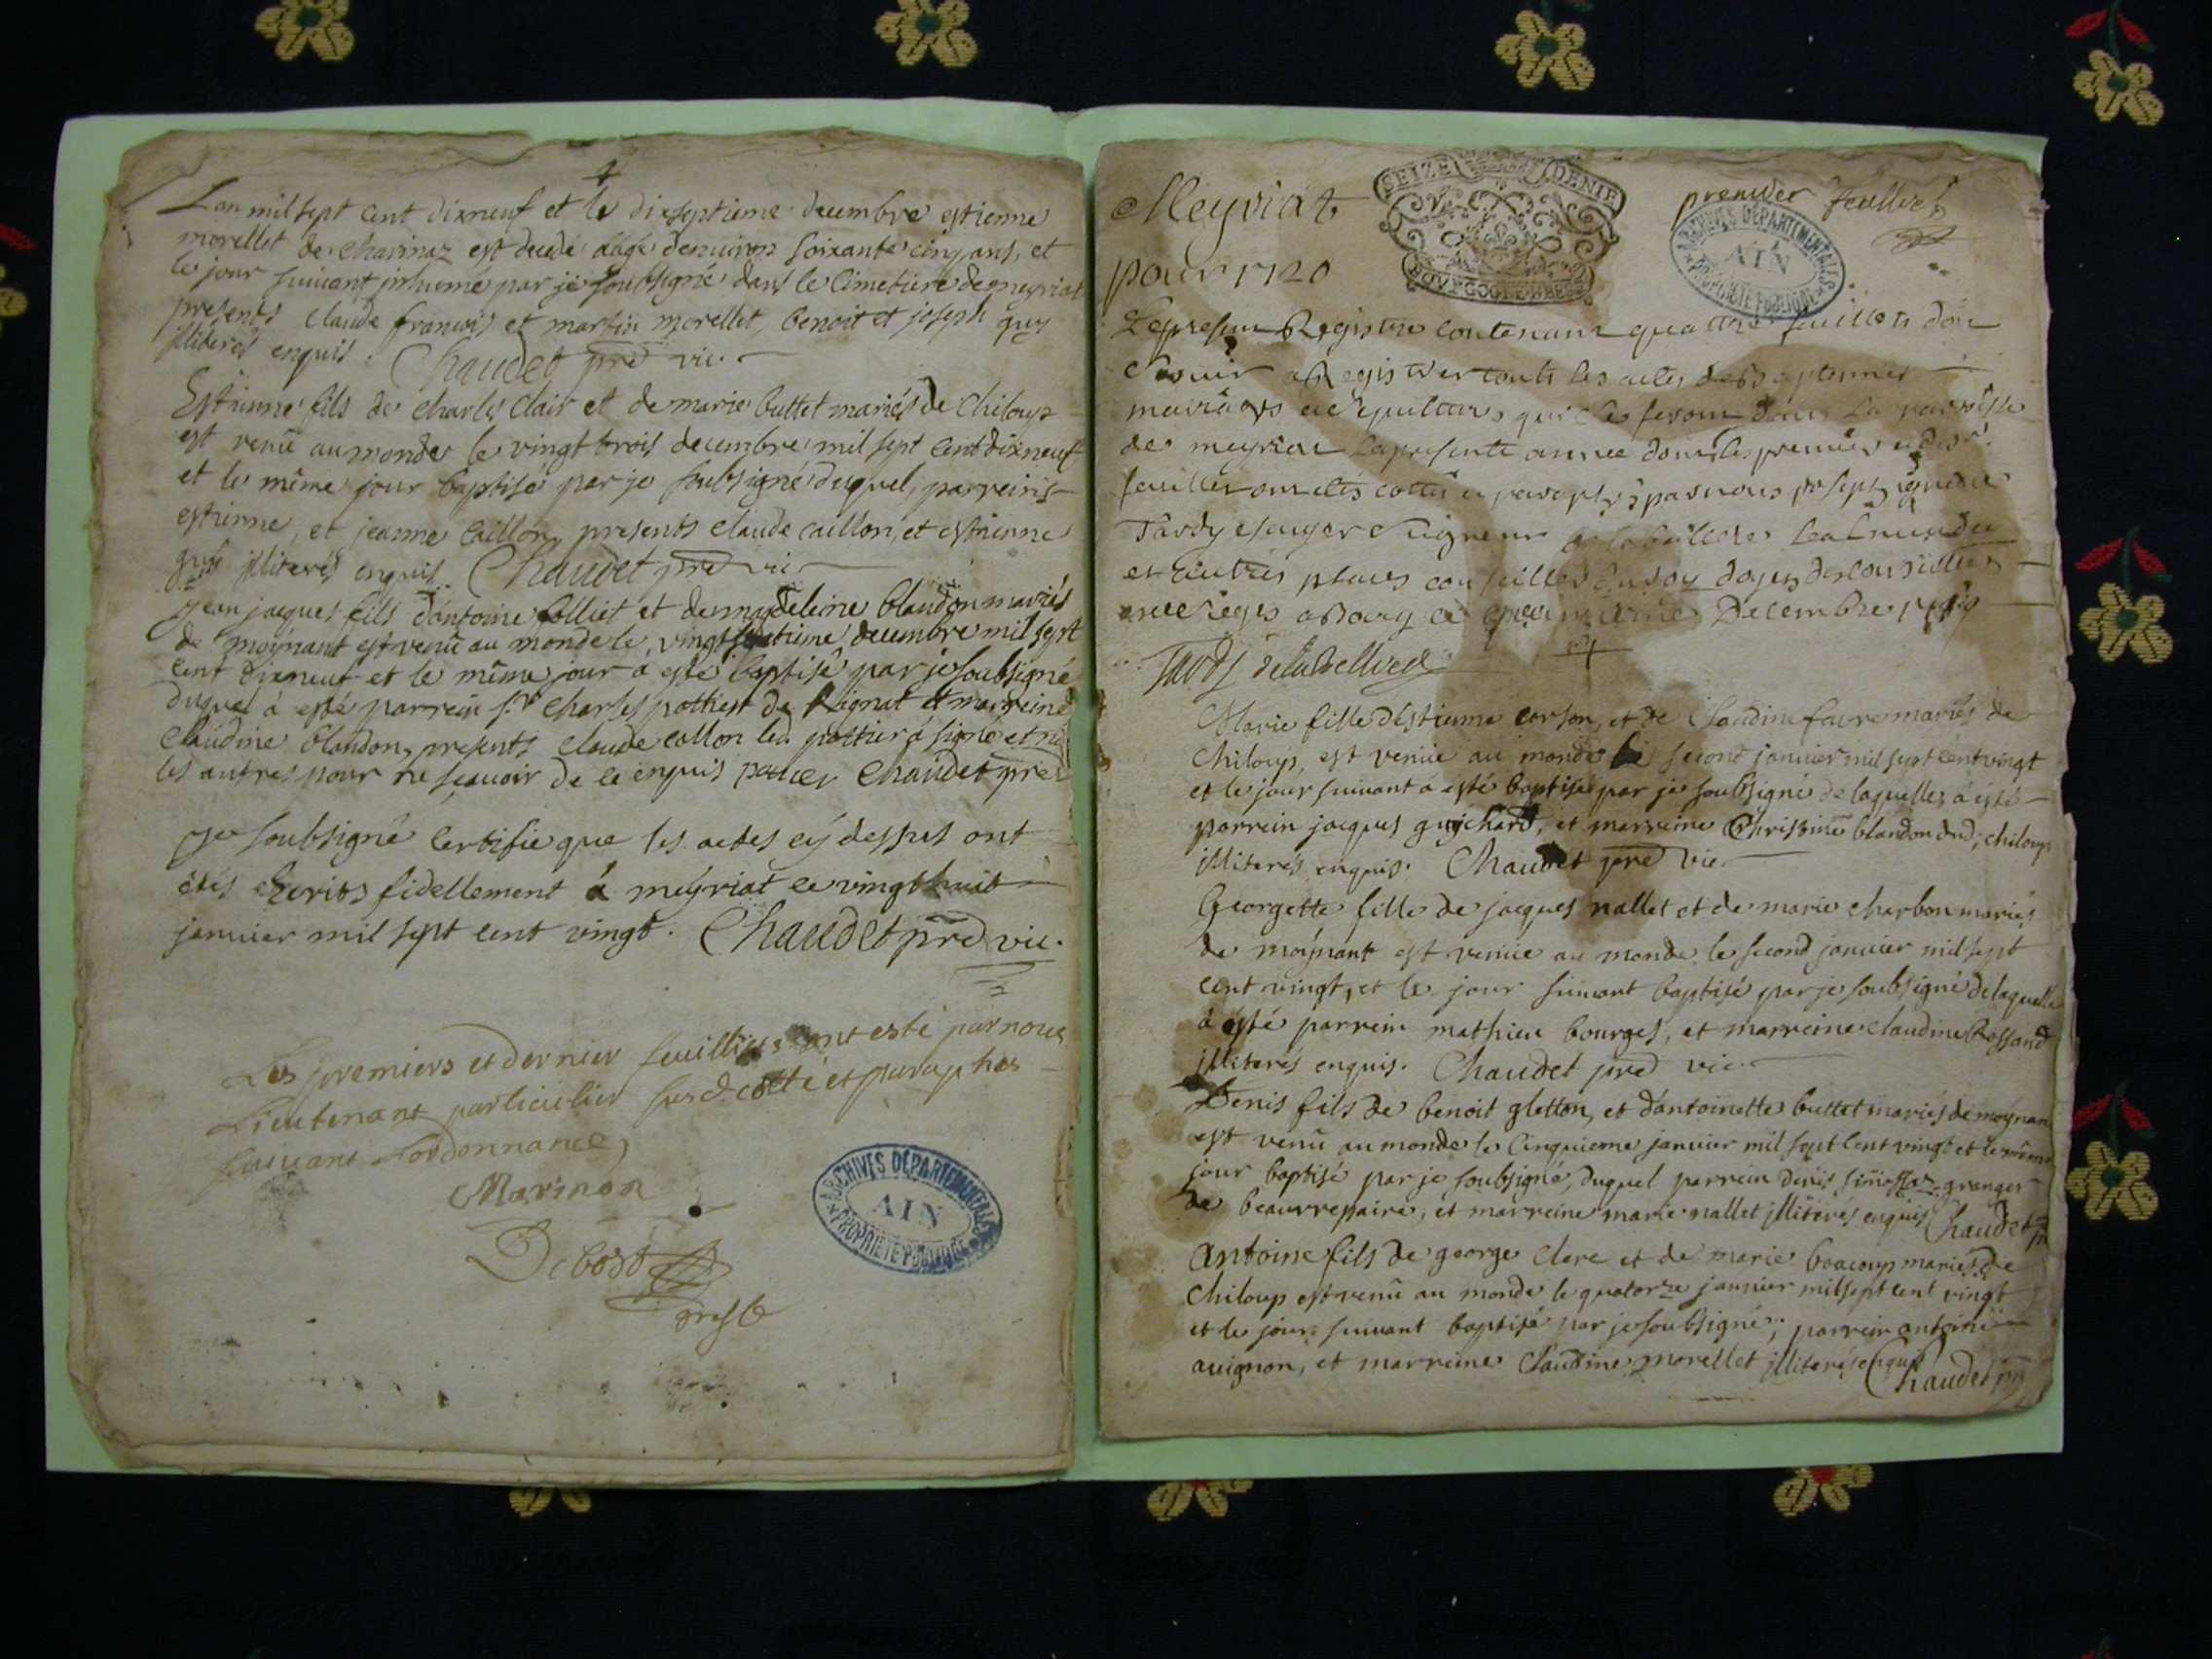 Lan mil sept cent dixneuf et le dixseptieme decembre estienne
morellet de charinaz est decedé aagé denuiron soixante cinq ans, et
le jour suiuant inhumé par je soubsigné dans le Cimetiere de meyriat
presents claude francois et martin morellet, benoit et joseph guy
jlliterés enquis. Chaudet pre vic.
Estienne fils de charles Clair et de marie buttet mariés de Chiloup
est venü au monde le vingt trois decembre mil sept cent dixneuf
et le même jour baptisé par je soubsigné duquel, parreins
estienne, et jeanne Caillon, presents claude caillon, et estienne
guy jlliterés enquis. Chaudet pre vic
jean jacques fils dantoine folliet et de madeleine blandon mariés
de moynant est venü au monde le vingt septieme decembre mil sept
cent dixneuf et le même jour a esté baptisé par je soubsigné
duquel a esté parrein sr. Charles pottier de Rignat et marreine
Claudine blandon, presents claude collon led. pottier a signé et n̄
les autres pour ne sçauoir de ce enquis potier Chaudet pre
je soubsigné Certifie que les actes cy dessus ont
étés Ecrits fidellement á meyriat ce vingt huit
januier mil sept cent vingt. Chaudet pre vic.
Les premiers et dernier feuillets ont esté par nous
Lieutenant particulier susd cotté et paraphes
suiuant Lordonnance,
Marinon
Debost
greff
Meyriat
premier feuillet
SEIZE DENIE
BOVRGOGNE BRESSE
ARCHIVES DEPARTEMENTALES
AIN
PROPRIETE PUBLIQUE
pour 1720
Le present Registre contenant quattre feuillets doit
seruir a Registrer touts les actes de baptesmes
mariages et sepultures qui se feront dans La parroisse
de meyriat La presente annee dont les premiers et der.
feuillet ont etés cottés et paraphés par nous
Tardy escuyer seigneur de la belliere
et autres places conseiller du Roy doyen des conseillers
a Bourg ce decembre 1719
Tardy delabelliere
Marie fille déstienne corson, et de Claudine faure mariés de
Chiloup, est venüe au monde le second januier mil sept cent vingt
et le jour suiuant a esté baptisé par je soubsigné de laquelle, a esté
parrein jacques guichard, et marreine Christine blandon dud. chiloup
jlliterés enquis. Chaudet pre vic.
Georgette fille de jacques nallet et de marie charbon mariés
de moynant est venüe au monde le second januier mil sept
cent vingt, et le jour suiuant baptisé par je soubsigné de laquelle
a esté parrein mathieu bourges, et marreine claudine Bossand
jlliterés enquis. Chaudet pre vic.
Denis fils de benoit gletton, et d'antoinette buttet mariés de moynan
est venü au monde le Cinquieme januier mil sept cent vingt et le même
jour baptisé par je soubsigné, duquel parrein denis granger
de beaurrepaire, et marreine marie nallet jlliterés enquis Chaudet p
Antoine fils de george clerc et de marie beacoup mariés de
Chiloup est venü au monde le quatorze januier mil sept cent vingt
et le jour suiuant baptisé par je soubsigné; parrein antoine
auignon, et marreine Claudine morellet jlliterés enquis Chaudet pre
ARCHIVES DEPARTEMENTALES
AIN
PROPRIETE PUBLIQUE